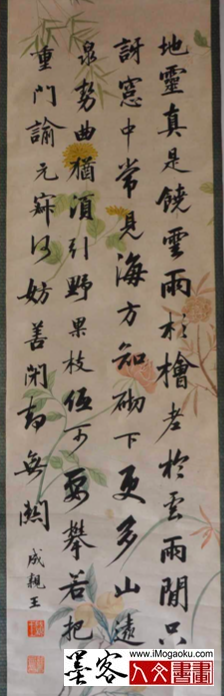 地靈真是饒雲雨杉檜老於雲雨間只
訝窓中常見海方知砌下更多山遠
泉勢曲猶須引野果枝低可要攀若把
重門諭元寂何妨善閉却無關
成親王
墨客
www.iMogaoku.com